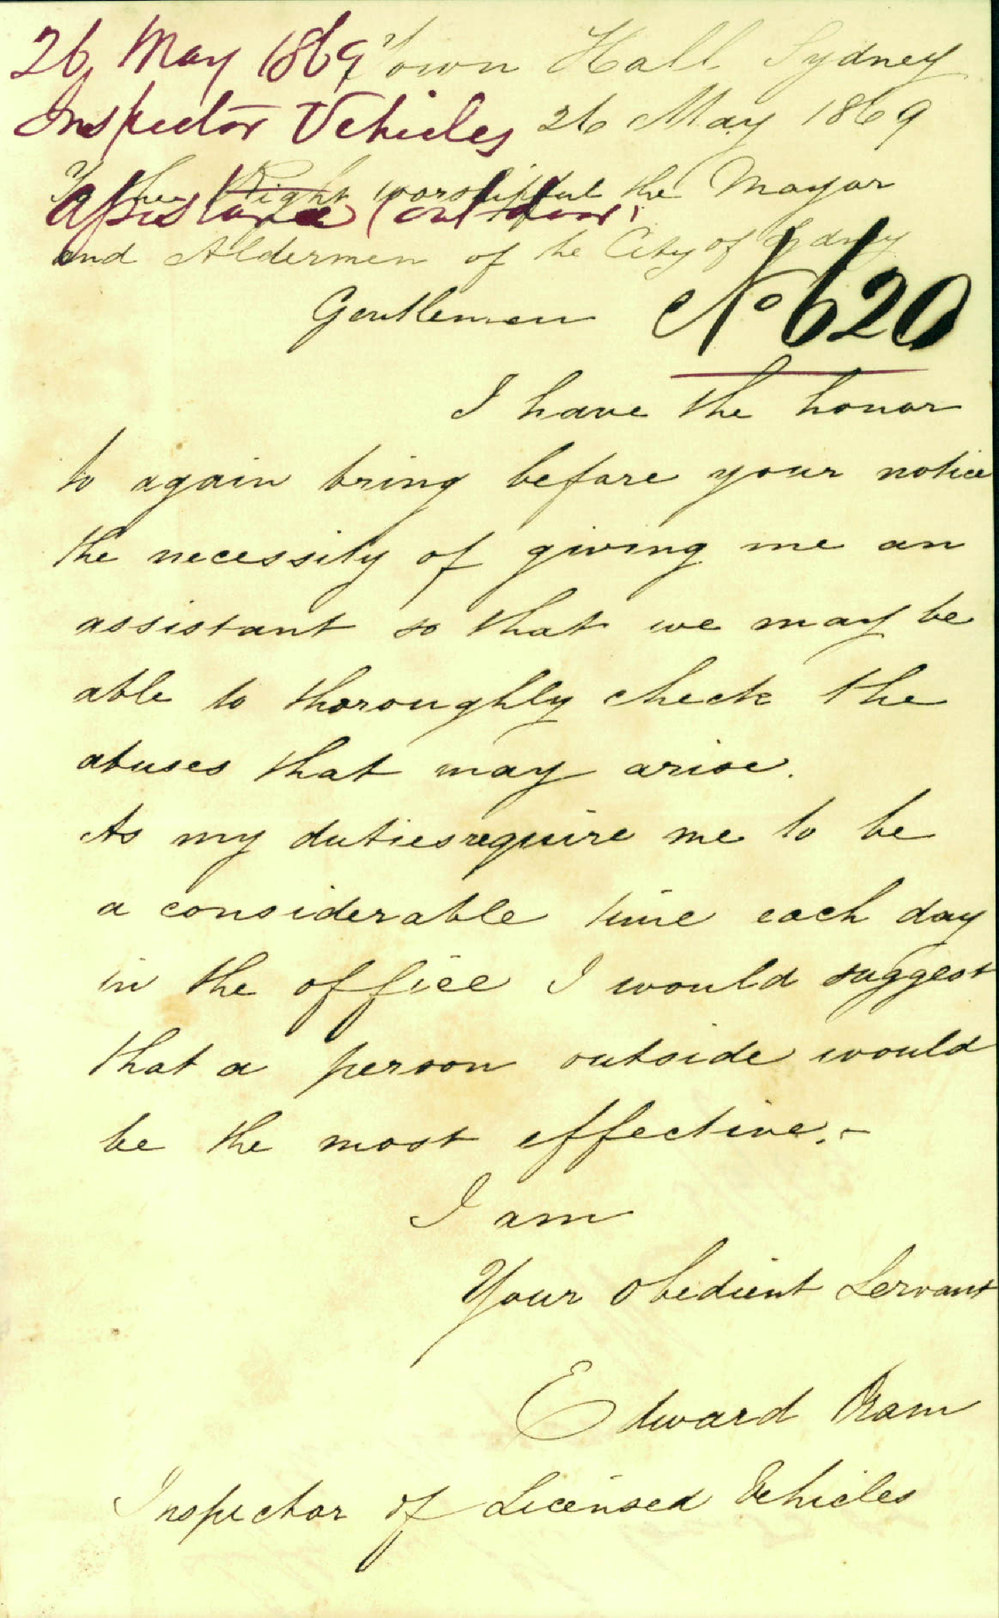 26 May 1869
Inspector Vehicles
Assistance (out door)
Town Hall Sydney
26 May 1869
To the Right worshipful the Mayor
and Aldermen of the City of Sydney
Gentlemen
No 620
I have the honor
to again bring before your notice
the necessity of giving me an
assistant so that we may be
able to thoroughly check the
abuses that may arise.
As my duties require me to be
a considerable time each day
in the office I would suggest
that a person outside would
be the most effective.-
I am
Your Obedient Servant
Edward Oram
Inspector of Licensed Vehicles